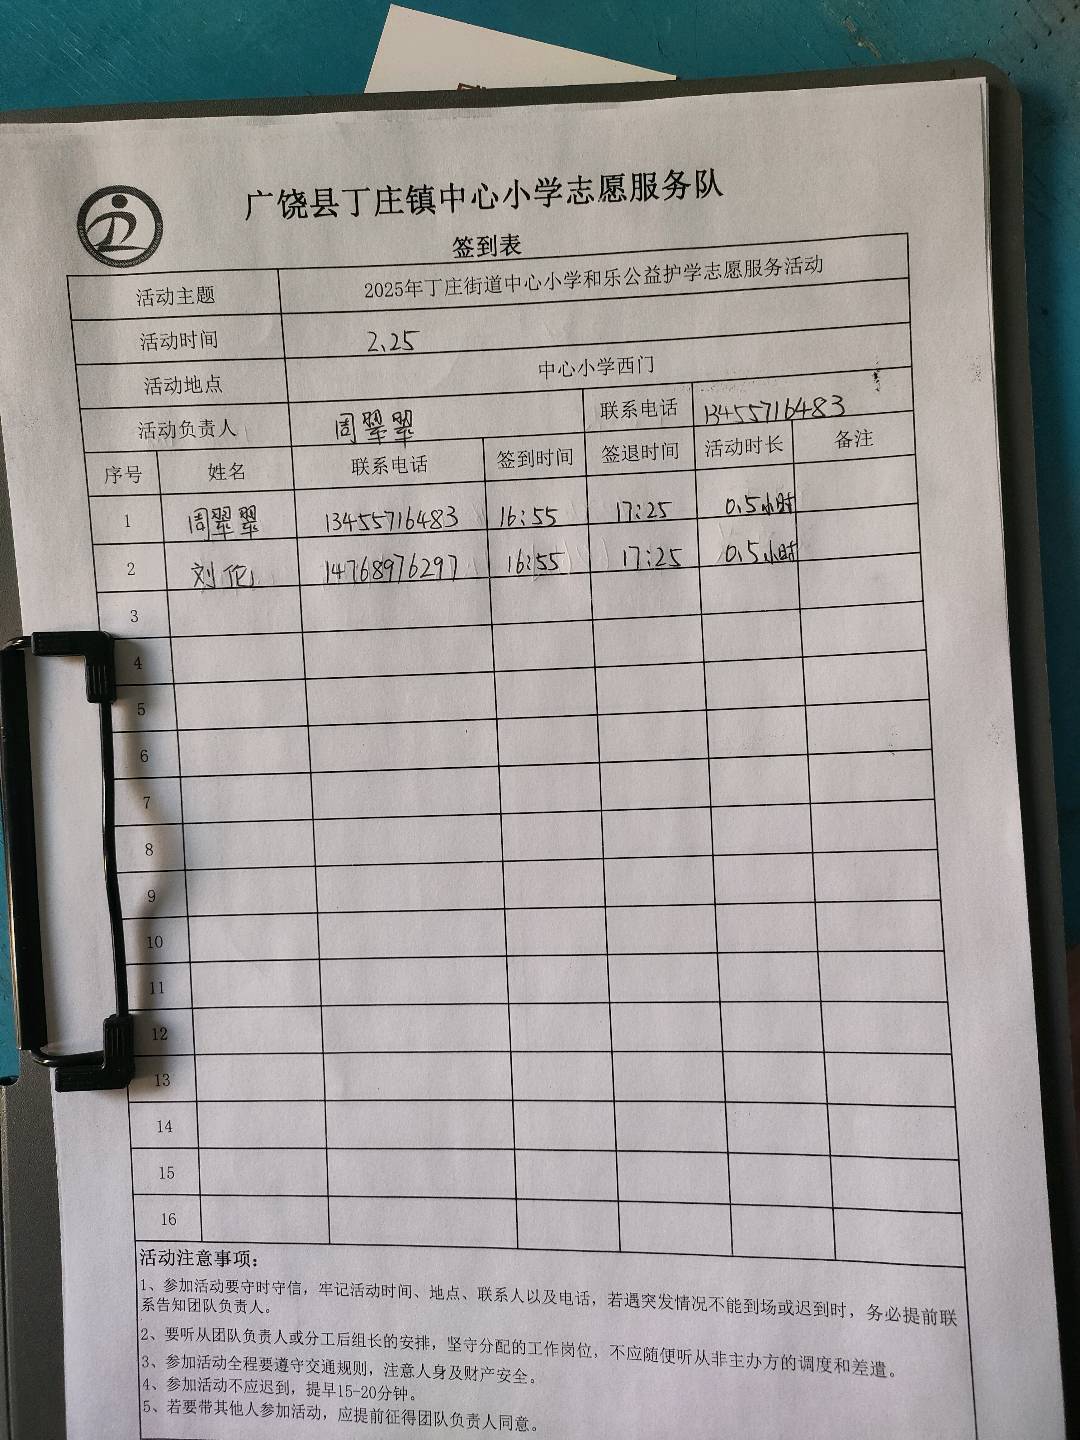 广饶县丁庄镇中心小学志愿服务队
签到表
活动主题 2025年丁庄街道中心小学和乐公益护学志愿服务活动
活动时间 2.25
活动地点 中心小学西门
活动负责人 周翠翠 联系电话 13455716483
序号 姓名 联系电话 签到时间 签退时间 活动时长 备注
1 周翠翠 13455716483 16:55 17:25 0.5小时
2 刘伦 14768976297 16:55 17:25 0.5小时
3
4
5
6
7
8
9
10
11
12
13
14
15
16
活动注意事项:
1、参加活动要守时守信，牢记活动时间、地点、联系人以及电话，若遇突发情况不能到场或迟到时，务必提前联
系告知团队负责人。
2、要听从团队负责人或分工后组长的安排，坚守分配的工作岗位，不应随便听从非主办方的调度和差遣。
3、参加活动全程要遵守交通规则，注意人身及财产安全。
4、参加活动不应迟到，提早15-20分钟。
5、若要带其他人参加活动，应提前征得团队负责人同意。